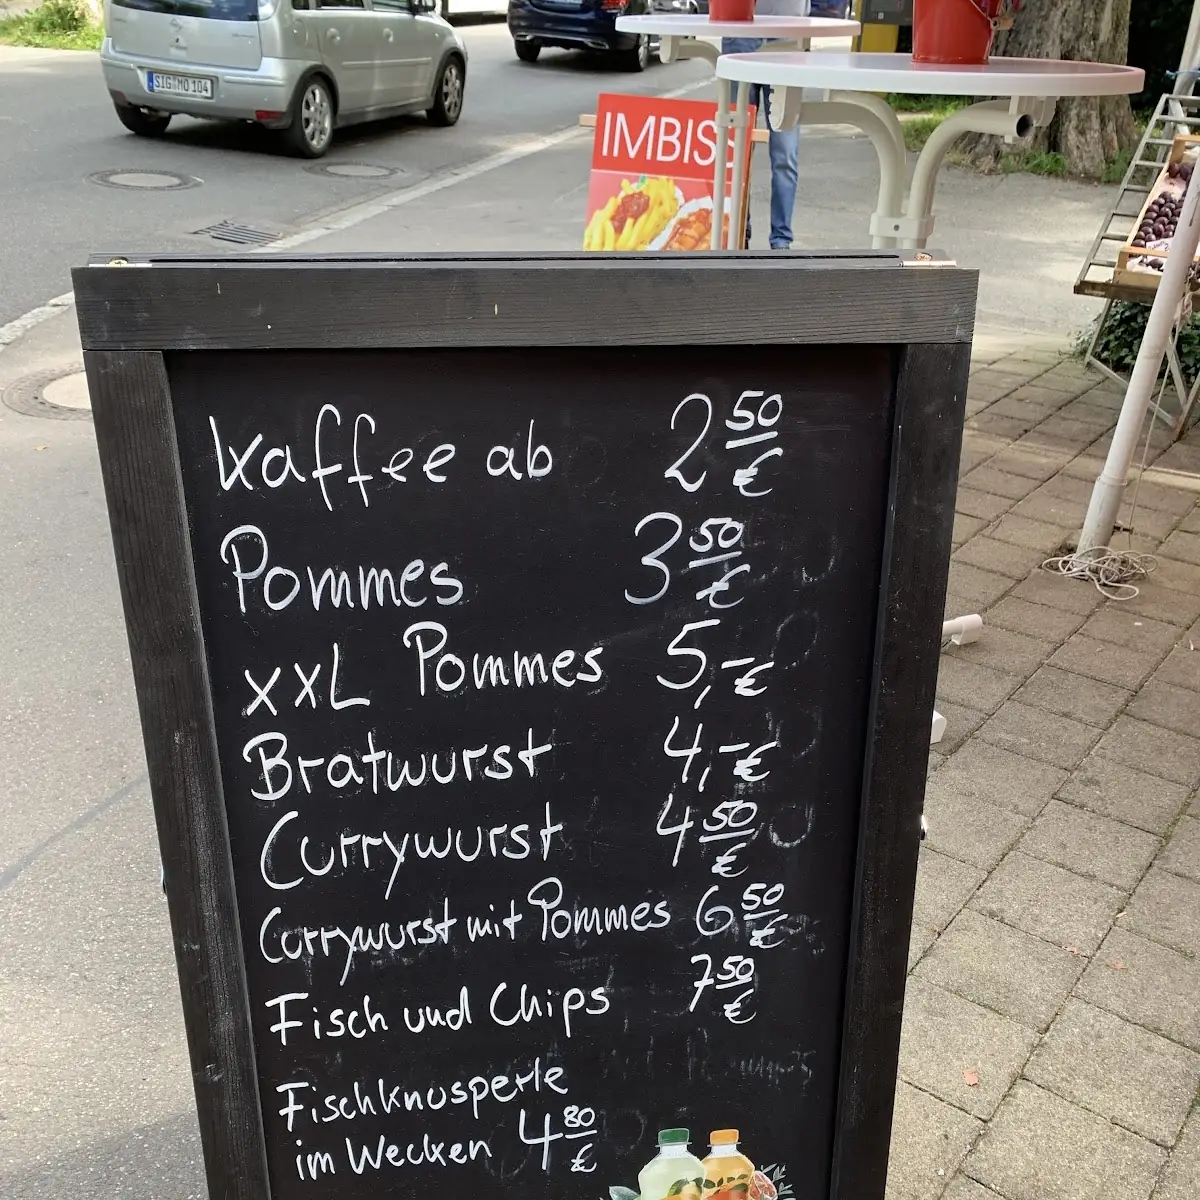 SIG MO 104
IMBISS
Kaffee ab 2 50 €
Pommes 3 50 €
XXL Pommes 5,- €
Bratwurst 4,- €
Currywurst 4 50 €
Currywurst mit Pommes 6 50 €
Fisch und Chips 7 50 €
Fischknusperle
im Wecken 4 80 €